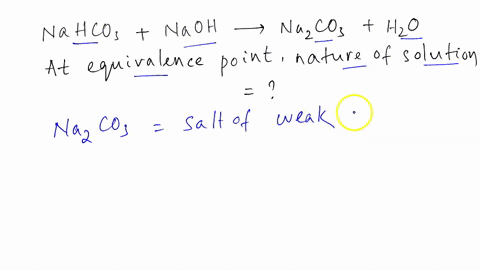 NaHCO₃ + NaOH ⟶ Na₂CO₃ + H₂O
At equivalence point, nature of solution
= ?
Na₂CO₃ = salt of weak